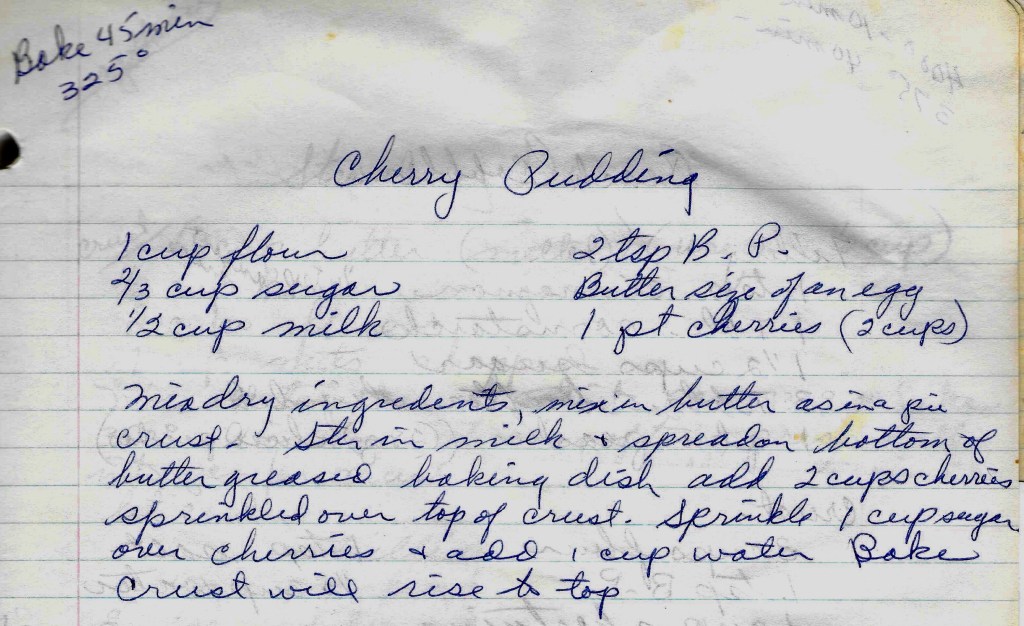 Bake 45 min
325°
Cherry Pudding
1 cup flour 2 tsp B. P.
2/3 cup sugar Butter size of an egg
1/2 cup milk 1 pt cherries (2 cups)
Mix dry ingredients, mix in butter as in a pie
crust. Stir in milk & spread on bottom of
butter greased baking dish add 2 cups cherries
sprinkled over top of crust. Sprinkle 1 cup sugar
over cherries & add 1 cup water Bake
Crust will rise to top